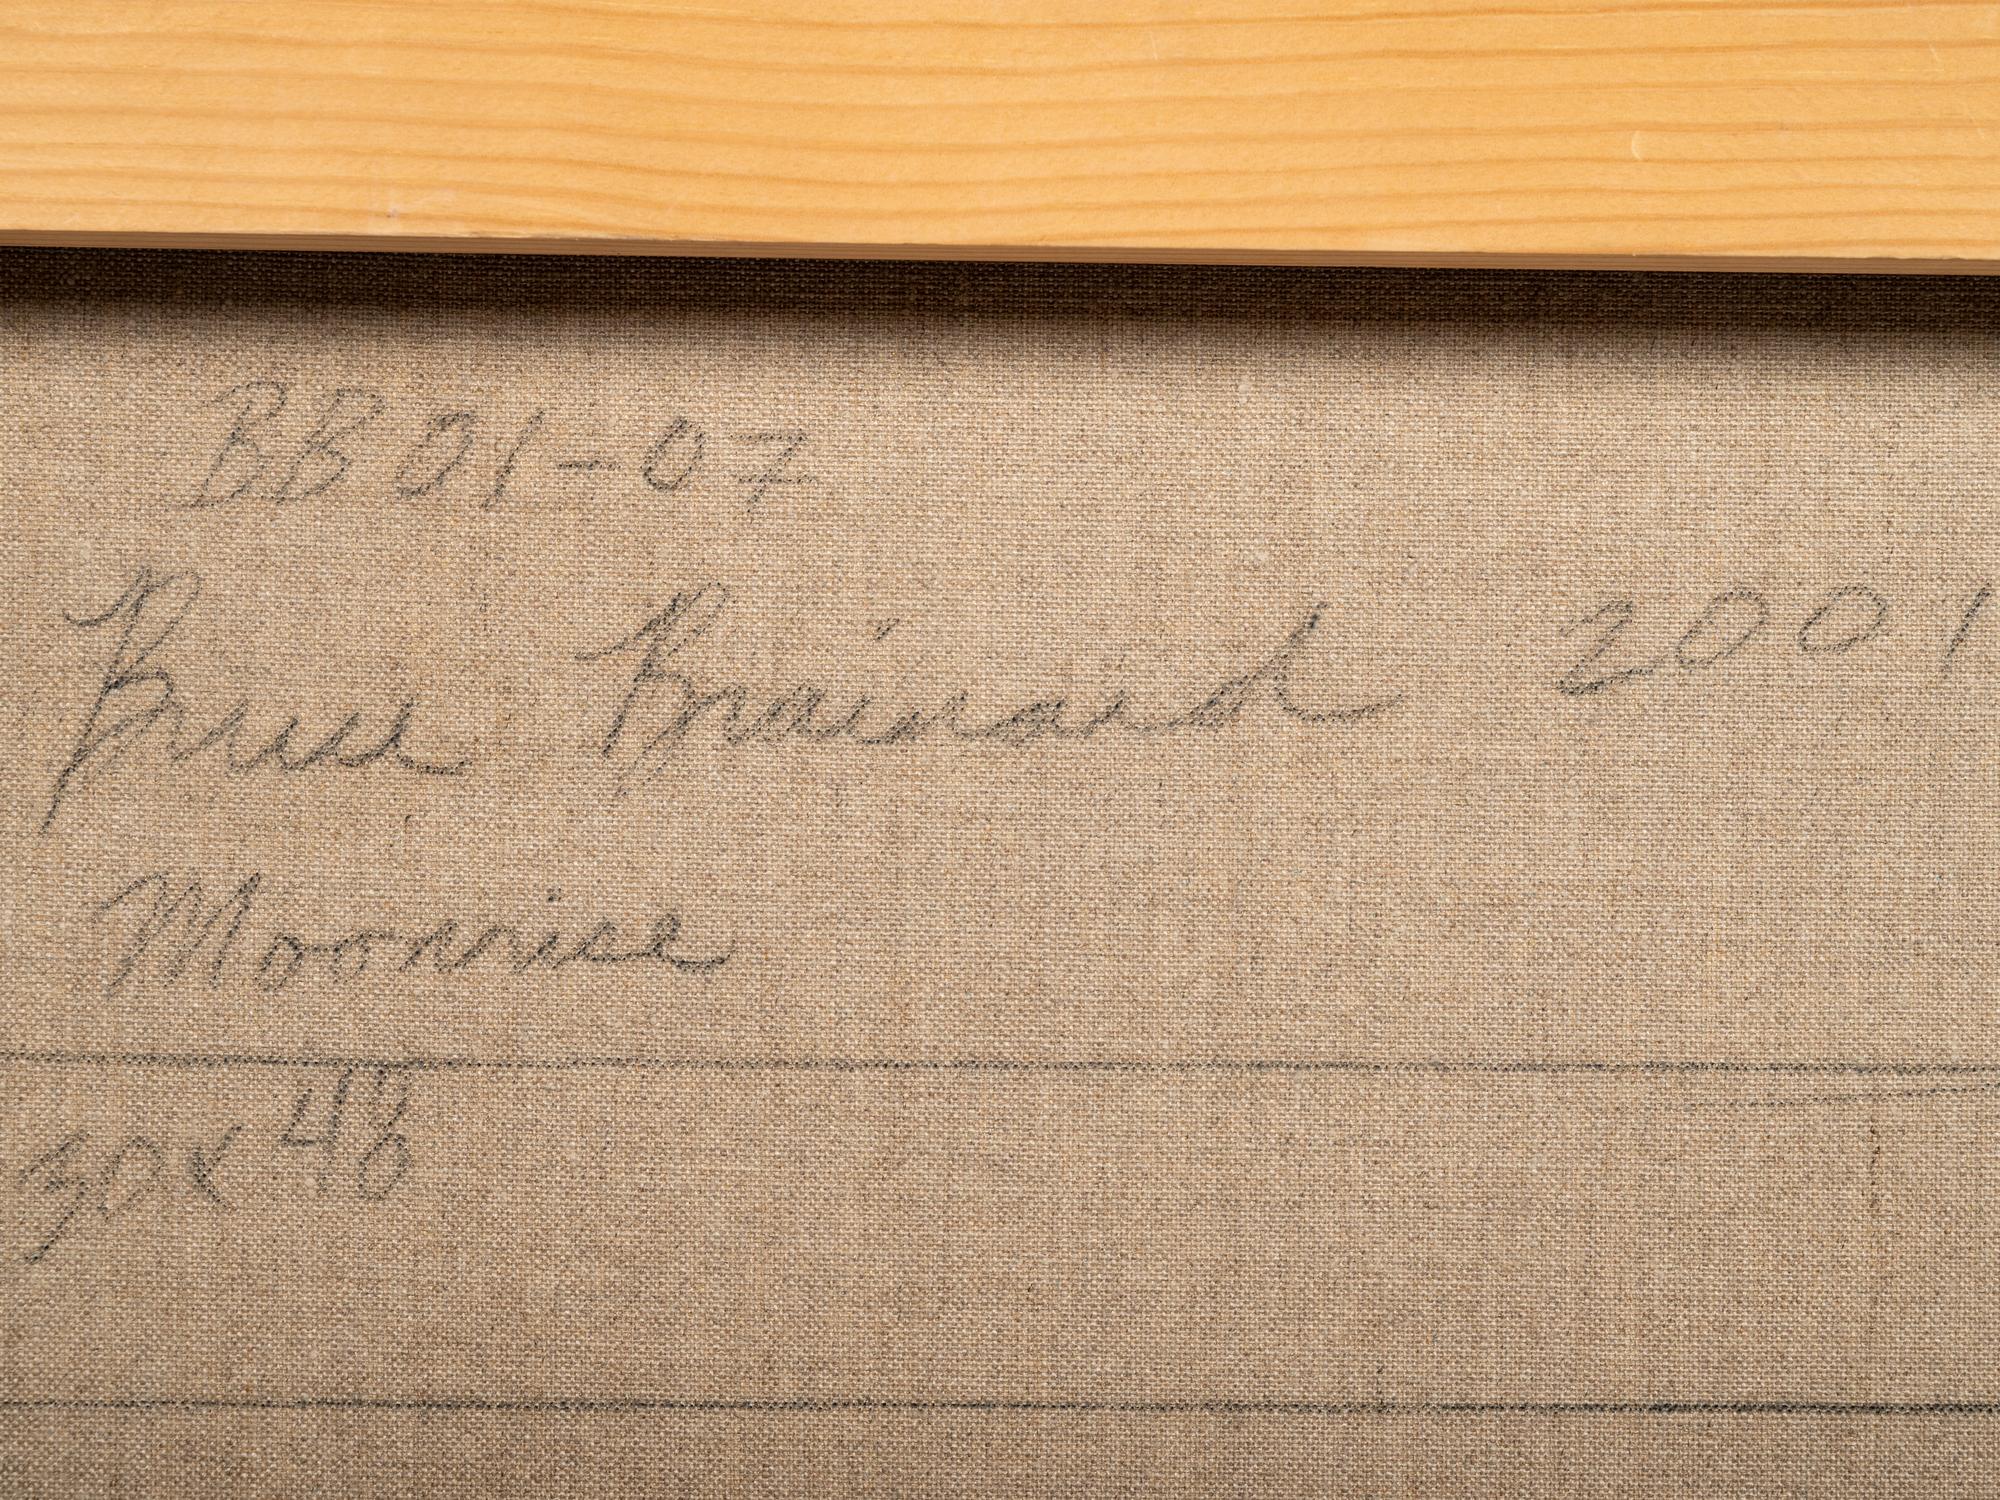 BB 01-07
Bruce Brainard 2001
Moonrise
30x48